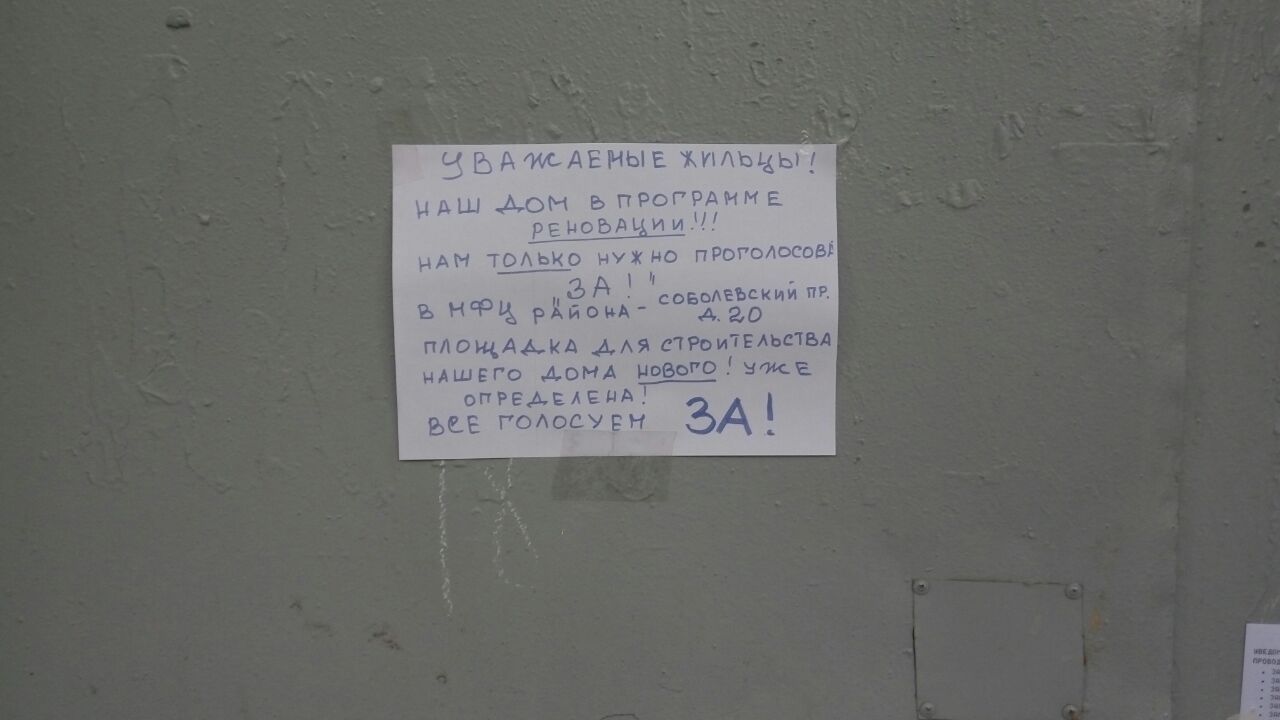 УВАЖАЕМЫЕ ЖИЛЬЦЫ!
НАШ ДОМ В ПРОГРАММЕ
РЕНОВАЦИИ!!!
НАМ ТОЛЬКО НУЖНО ПРОГОЛОСОВА
"ЗА!"
В МФЦ РАЙОНА - СОБОЛЕВСКИЙ ПР.
Д. 20
ПЛОЩАДКА ДЛЯ СТРОИТЕЛЬСТВА
НАШЕГО ДОМА НОВОГО! УЖЕ
ОПРЕДЕЛЕНА!
ВСЕ ГОЛОСУЕМ ЗА!